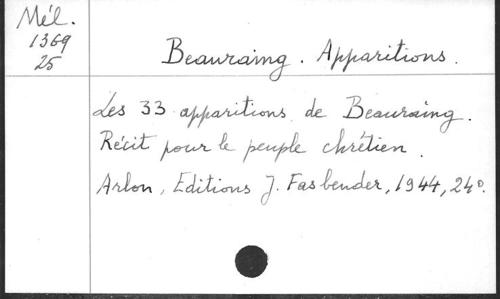 Mél.
1369
25
Beauraing. Apparitions.
Les 33 apparitions de Beauraing.
Récit pour le peuple chrétien.
Arlon, Editions J. Fasbender, 1944, 24°.